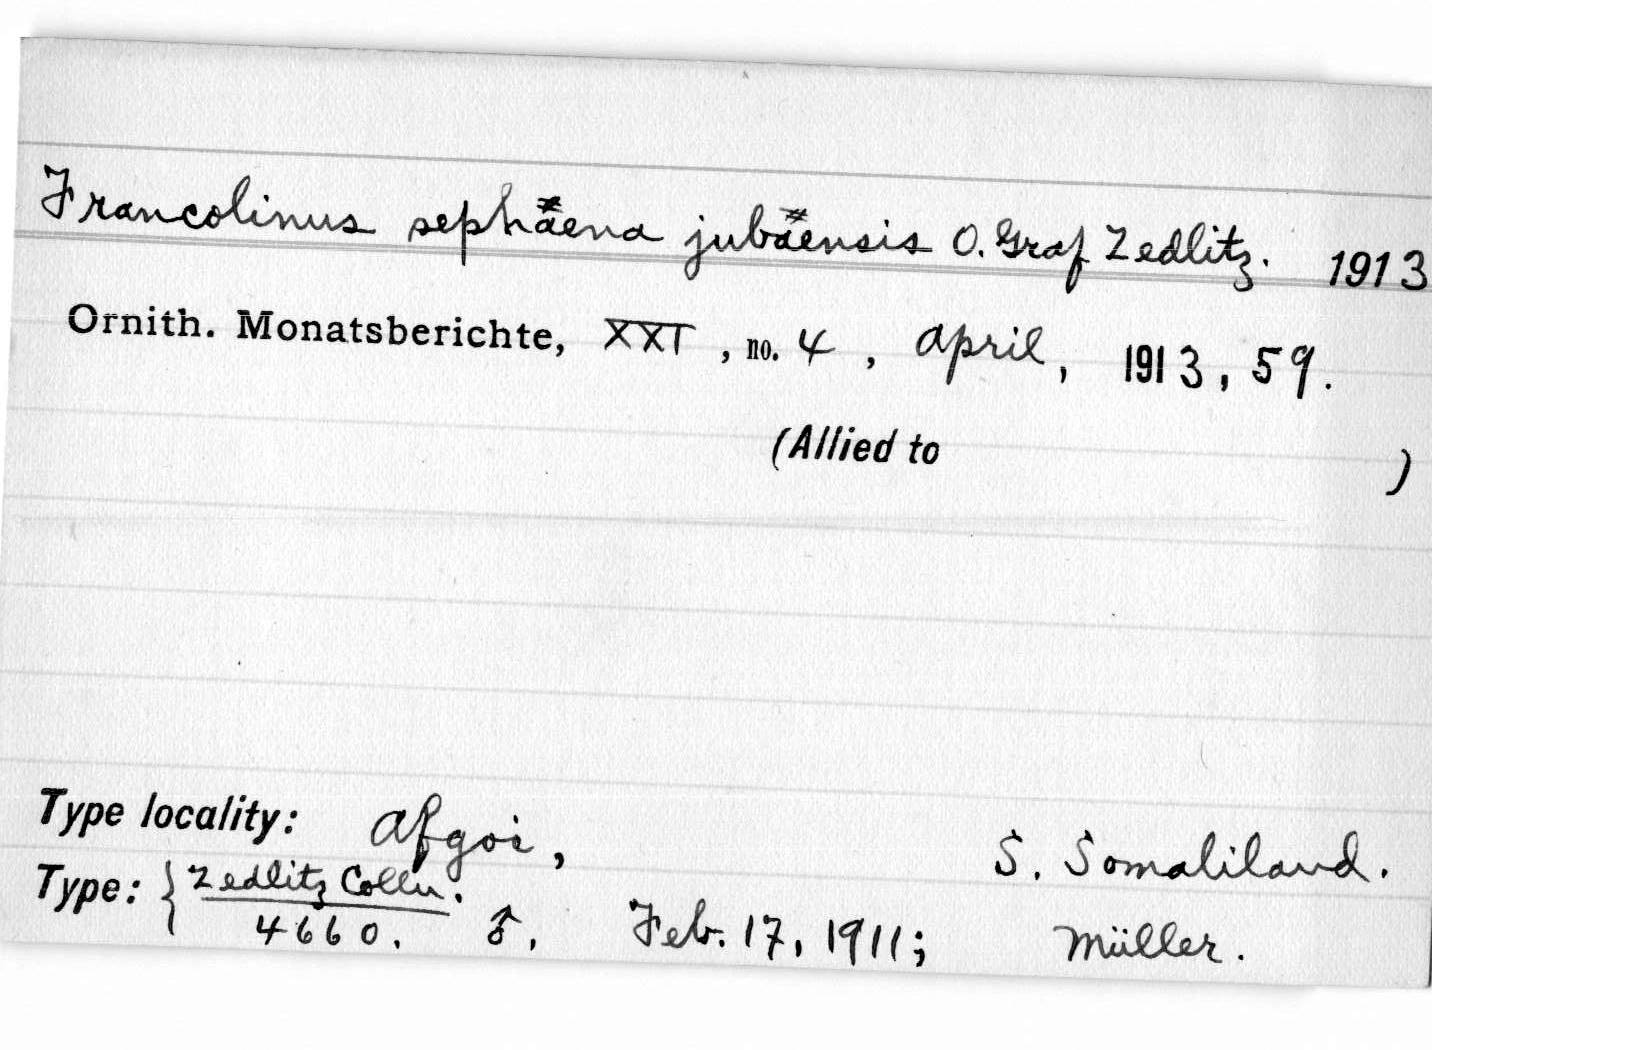 Francolinus sephäena jubäensis O. Graf Zedlitz. 1913
Ornith. Monatsberichte, XXI, no. 4, April, 1913, 59.
(Allied to )
Type locality: Afgoi, S. Somaliland.
Type: { Zedlitz Colln.
4660. ♂, Feb. 17, 1911; Müller.